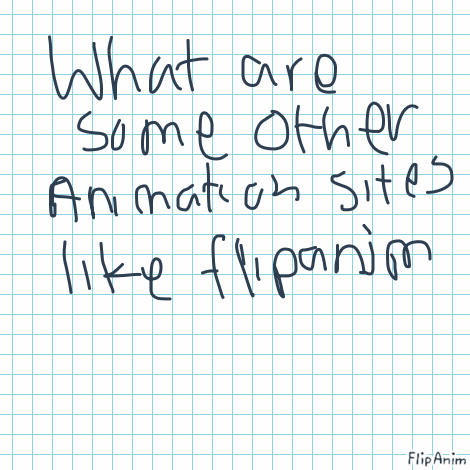 What are
some other
Animation sites
like flipanim
FlipAnim